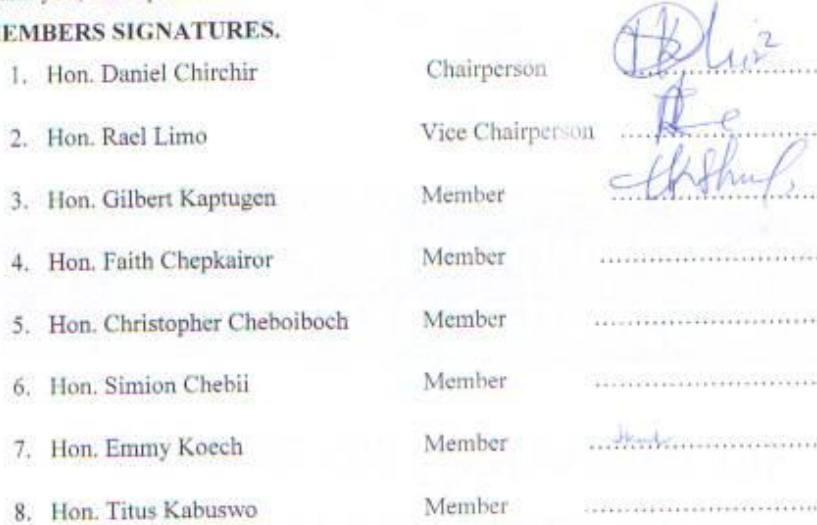 EMBERS SIGNATURES.
1. Hon. Daniel Chirchir Chairperson ....................
2. Hon. Rael Limo Vice Chairperson ....................
3. Hon. Gilbert Kaptugen Member ....................
4. Hon. Faith Chepkairor Member ....................
5. Hon. Christopher Cheboiboch Member ....................
6. Hon. Simion Chebii Member ....................
7. Hon. Emmy Koech Member ....................
8. Hon. Titus Kabuswo Member ....................